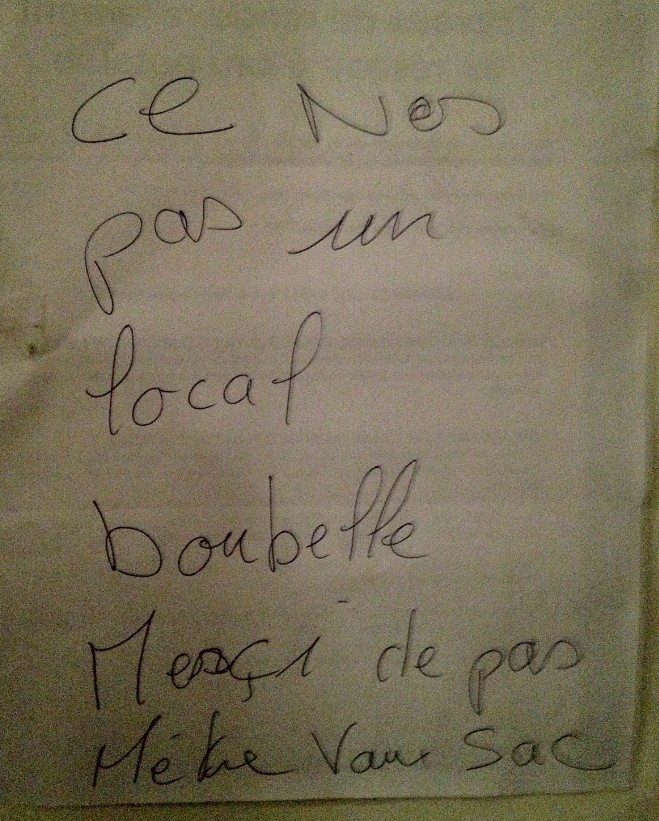 Ce Nes
pas un
local
boubelle
Merçi de pas
Métre Vaux Sac